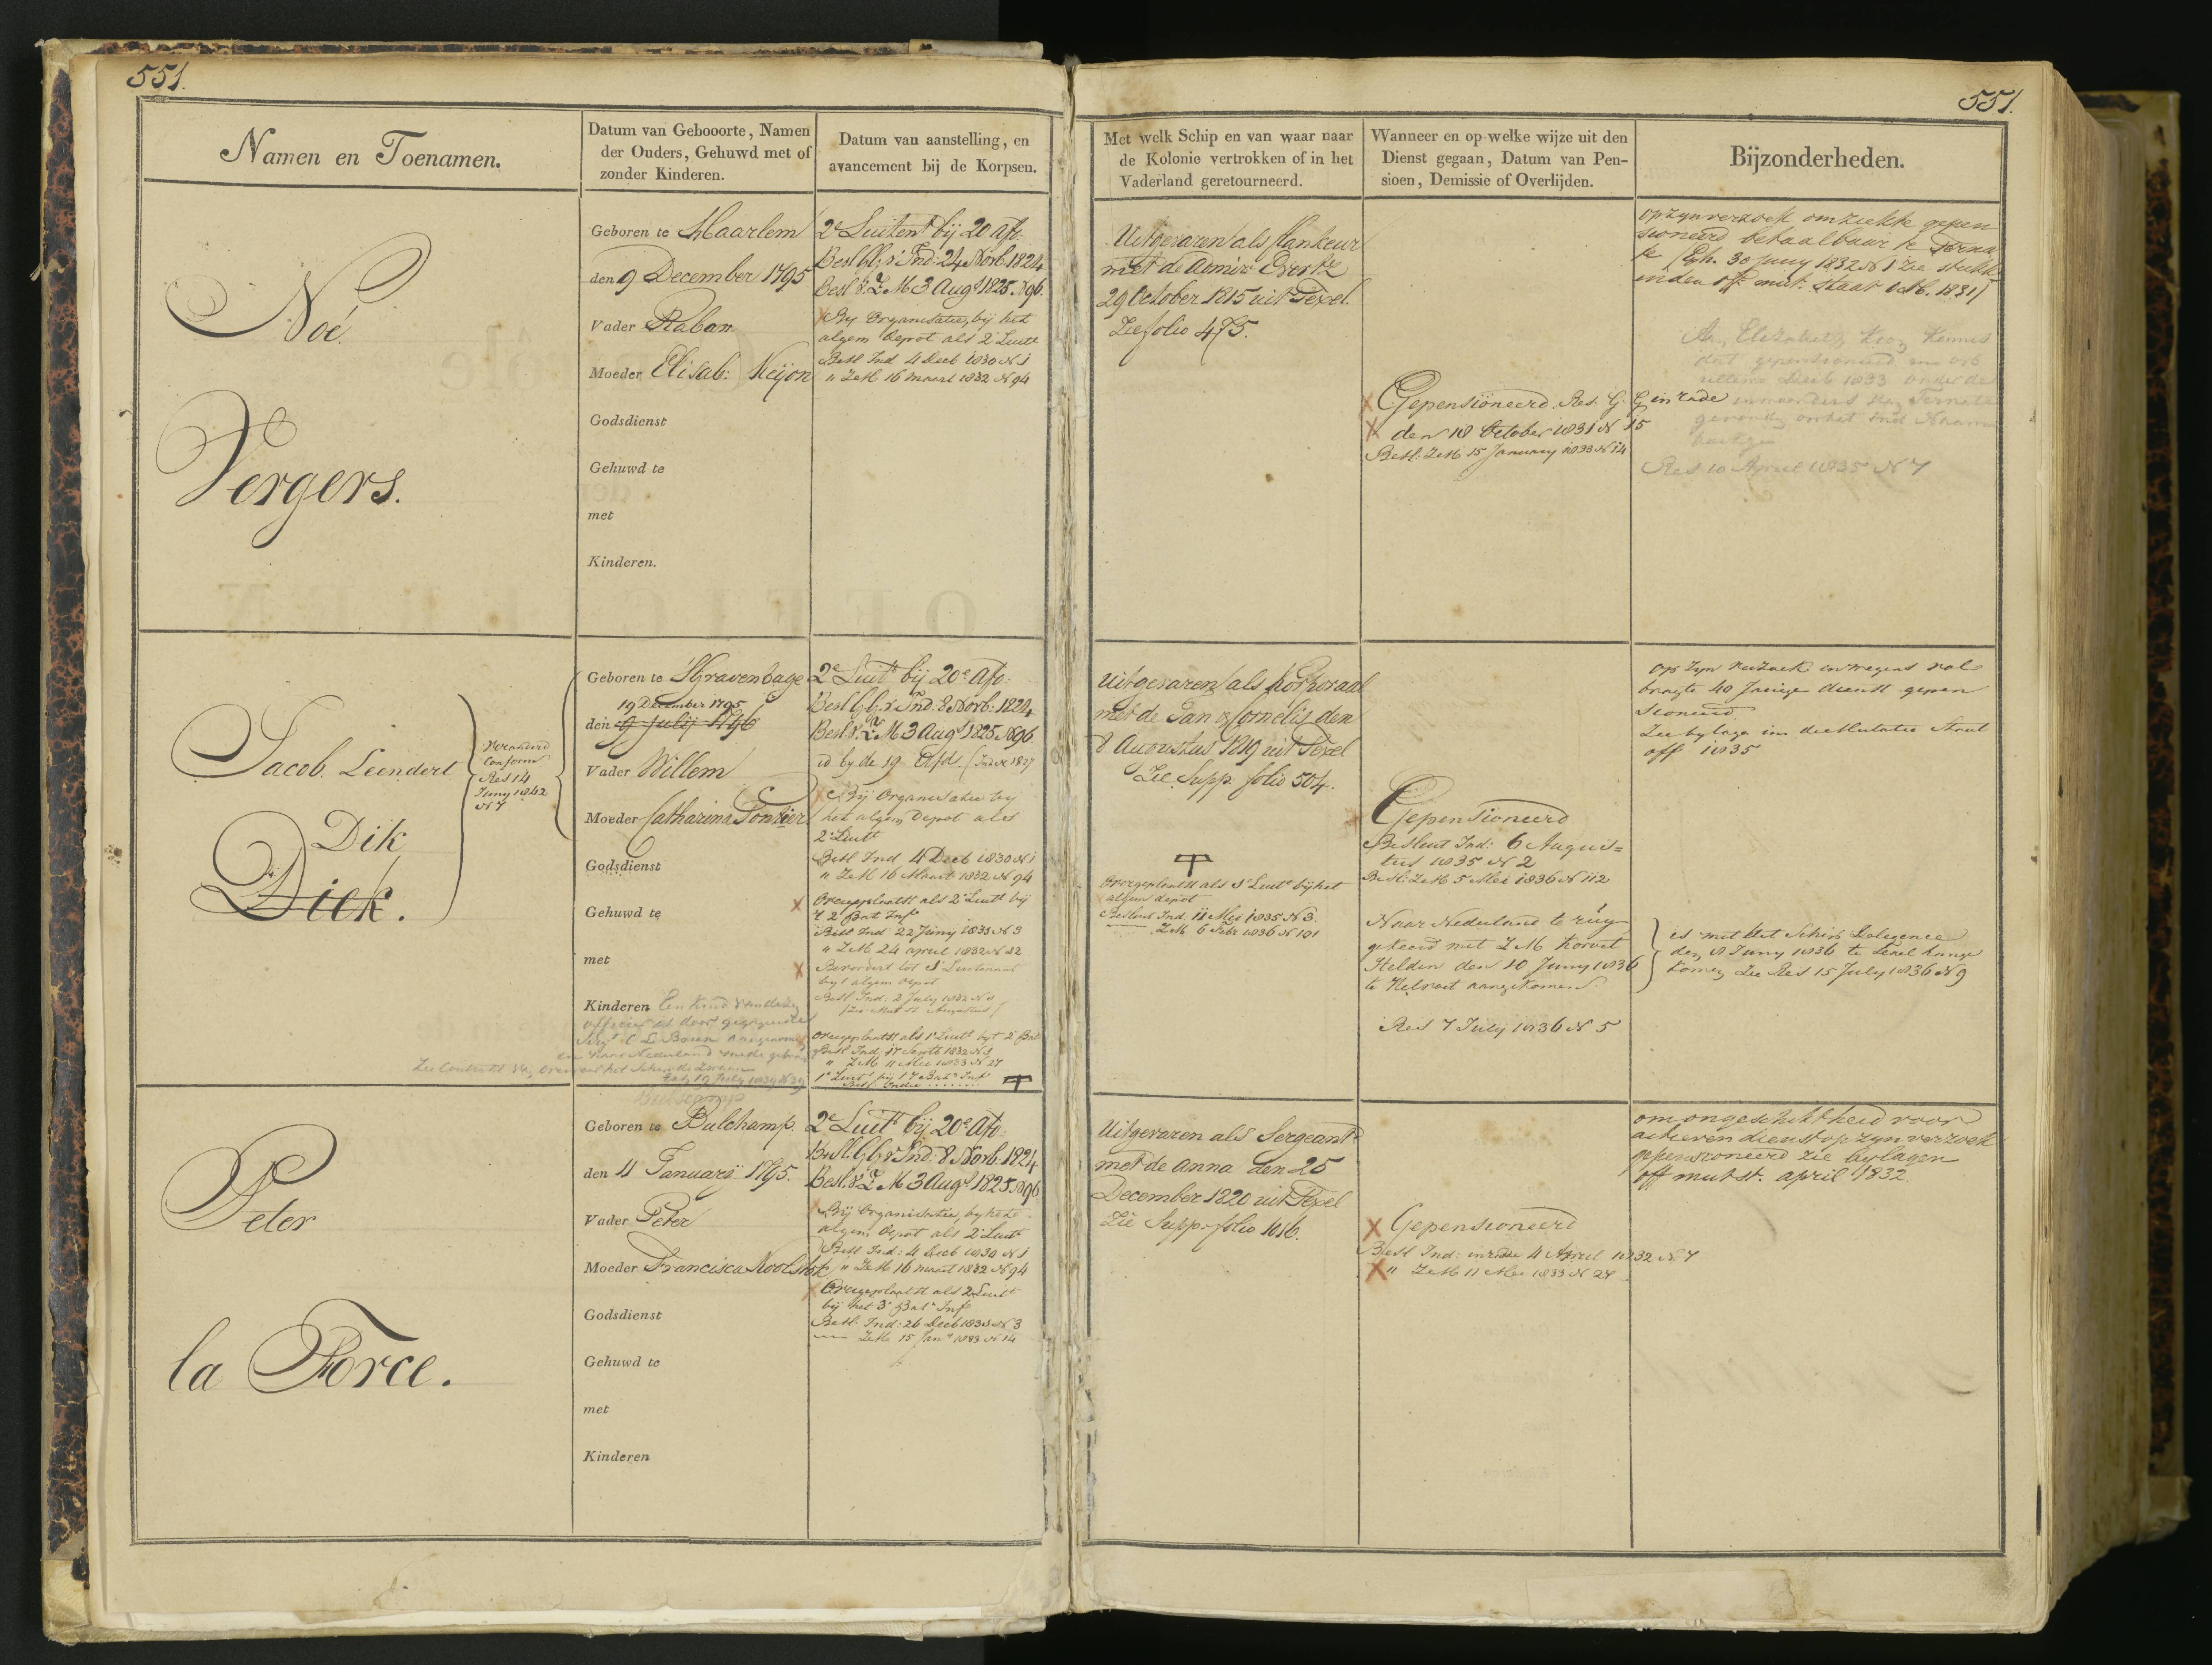 551.
551.
Namen en Toenamen.
Datum van Gebooorte, Namen
der Ouders, Gehuwd met of
zonder Kinderen.
Datum van aanstelling, en
avancement bij de Korpsen.
Met welk Schip en van waar naar
de Kolonie vertrokken of in het
Vaderland geretourneerd.
Wanneer en op welke wijze uit den
Dienst gegaan, Datum van Pen-
sioen, Demissie of Overlijden.
Bijzonderheden.
Noé.
Vergers.
Geboren te Haarlem
den 9 December 1795
Vader Raban
Moeder Elisab: Keijon
Godsdienst
Gehuwd te
met
Kinderen.
2e Luitent bij 20 Afo.
Besl GG v Ind: 24 Novb. 1824
Besl v. Z M 3 Augt 1825 N 96.
By Organisatie, bij het
algem Depot als 2e Luitt
Besl Ind 4 Decb 1830 N 1
" Z M 16 maart 1832 N 94
Uitgevaren als flankeur
met de Admir Evertz
29 October 1815 uit Texel.
Zie folio 475.
Gepensioneerd Res. G. G in rade
den 18 October 1831 N 15
Besl: Z M 15 January 1833 N 14
op zyn verzoek om ziekte gepen
sioneerd betaalbaar te Terna
te 30 Juny 1832 N 1 zie stukk
in den off mut: staat Octb. 1831
Res 10 April 1835 N 7
Jacob Leendert
Dik
Diek.
Veranderd
Conform
Res 14
Juny 1842
N 7
Geboren te 'SGravenhage
19 December 1795
den 9 Julij 1796
Vader Willem
Moeder Catharina Pontier
Godsdienst
Gehuwd te
met
Kinderen Een kind van dezen
officier is door
2e Luitt bij 20e Afo.
Besl GG v Ind: 8 Novb: 1824
Besl v. Z M 3 Augt 1825 N 96
id by de 19 Afd. (Ind 1827
Bij Organisatie bij
het algem Depot als
2e Luitt
Besl Ind 4 Decb 1830 N 1
" Z M 16 Maart 1832 N 94
Overgeplaatst als 2e Luitt bij
't 2e Bat Inf
Besl Ind 22 Juny N 3
" Z M 24 april 1832 N 22
Bevordert tot 1e Luitenant
by 't algem depot
Besl Ind: 2 July 1832
Overgeplaatst als 1e Luitt byt 2e Bat
Besl Ind 17 Septb 1832 N 3
" Z M 11 Mei 1833 N 27
1e Luitt bij 't 7e Batn Inf
Uitgevaren als korporaal
met de Jan & Cornelis den
8 Augustus 1819 uit Texel
Zie Supp folio 504.
Overgeplaatst als 1e Luitt bij het
algem depot
Besluit Ind. 11 Mei 1835 N 3.
Z M 6 Febr 1836 N 101
Gepensioneerd
Besluit Ind: 6 Augus=
tus 1835 N 2
Besl: Z M 5 Mei 1836 N 112
Naar Nederland te rug
gekeerd met Z M Korvet
Heldin den 10 Juny 1836
te Helvoet aangekomen
Res 7 July 1836 N 5
op zyn verzoek en wegens vol
bragte 40 Jarige dienst gepen
sioneerd
Zie bylage in de Mutatie Staat
off 1835
is met het Schip Diligence
den 8 Juny 1836 te Texel aange
komen Zie Res 15 July 1836 N 9
Peter
la Force.
Geboren te Bulchamp.
den 4 Januarij 1795.
Vader Peter
Moeder Francisca Noolshok
Godsdienst
Gehuwd te
met
Kinderen
2e Luitt bij 20e Afo.
Besl. GG v Ind: 8 Novb. 1824
Besl. v. Z M 3 Augt 1825 N 96
Bij Organisatie, by het
algem Depot als 2e Luitt
Besl Ind: 4 Decb 1830 N 1
" Z M 16 maart 1832 N 94
Overgeplaatst als 2 Luitt
bij het 3e Batn Inf
Besl. Ind: 26 Decb N 3
Z M 15 Jany 1833 N 14
Uitgevaren als Sergeant
met de Anna den 25
December 1820 uit Texel
Zie Supp. folio 1016.
Gepensioneerd
Besl Ind: in rade 4 April 1832 N 7
" Z M 11 Mei 1833 N 27
om ongeschiktheid voor
actieven dienst op zyn verzoek
gepensioneerd zie bylagen
off mut st. april 1832.